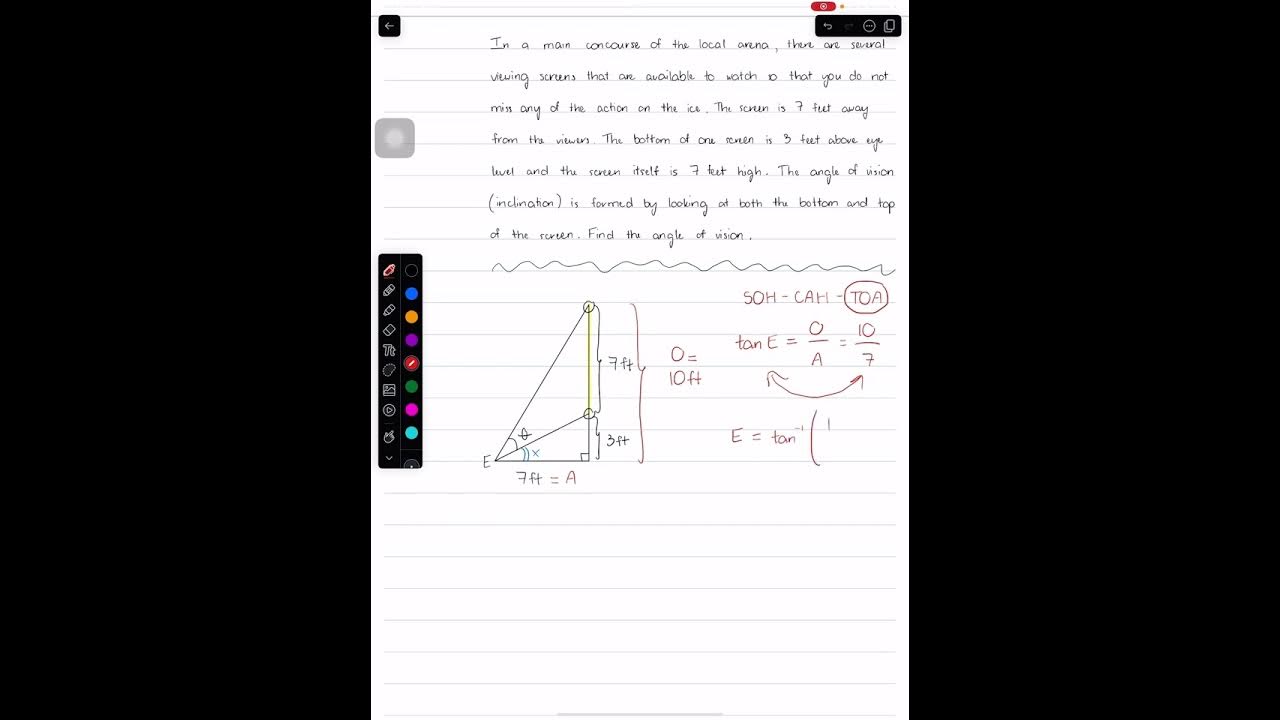 In a main concourse of the local arena, there are several
viewing screens that are available to watch so that you do not
miss any of the action on the ice. The screen is 7 feet away
from the viewers. The bottom of one screen is 3 feet above eye
level and the screen itself is 7 feet high. The angle of vision
(inclination) is formed by looking at both the bottom and top
of the screen. Find the angle of vision.
SOH - CAH - TOA
tan E = O/A = 10/7
7ft
O =
10ft
E = tan⁻¹ ( 1
θ
3ft
x
E
7ft = A
Tt